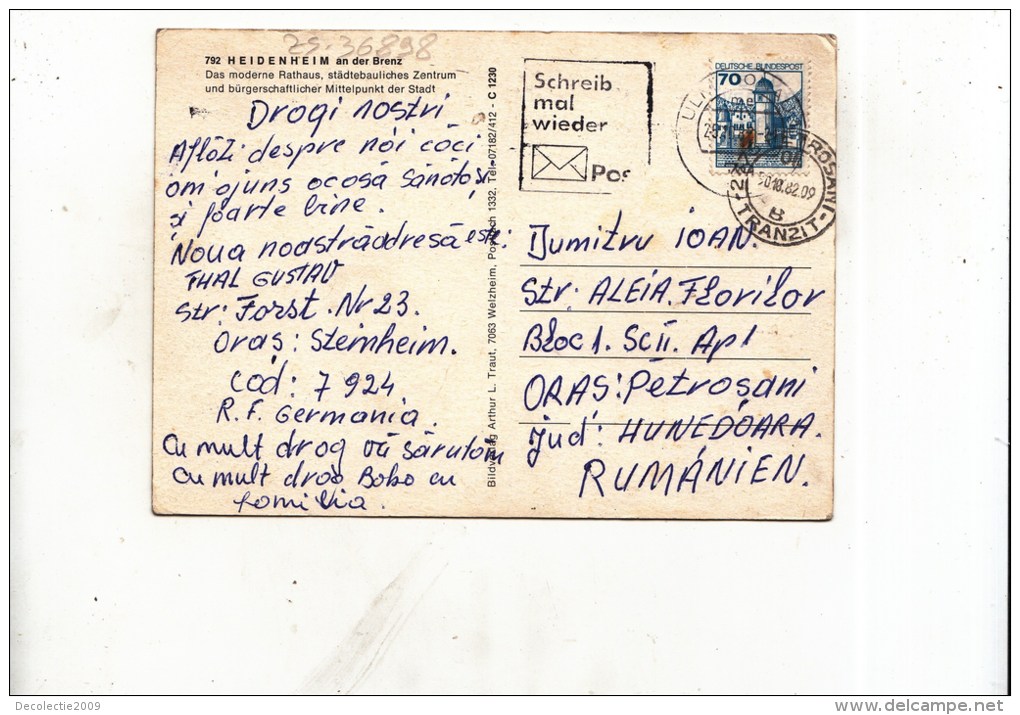 25-36898
792 HEIDENHEIM an der Brenz
Das moderne Rathaus, städtebauliches Zentrum
und bürgerschaftlicher Mittelpunkt der Stadt
Drogi nostri
Aflăți despre noi căci
om ajuns acasă sănătoși
și foarte bine.
Noua noastră adresă este:
THAL GUSTAV
Str: Forst. Nr 23.
Oraș: Steinheim.
Cod: 7 924
R.F. Germania.
Cu mult drog vă sărutăm
Cu mult drog Bobo cu
familia.
Bildverlag Arthur L. Traut, 7063 Welzheim, Postfach 1332, Tel. 07182/412 - C 1230
Schreib
mal
wieder
Pos
DEUTSCHE BUNDESPOST
70
ULM
30.10.82.09
B
TRANZIT
Dumitru IOAN.
Str: ALEIA. Florilor
Bloc 1. Sc II. Ap 1
ORAS: Petroșani
Jud: HUNEDOARA.
RUMÁNIEN.
Decolectie2009
delcampe.net